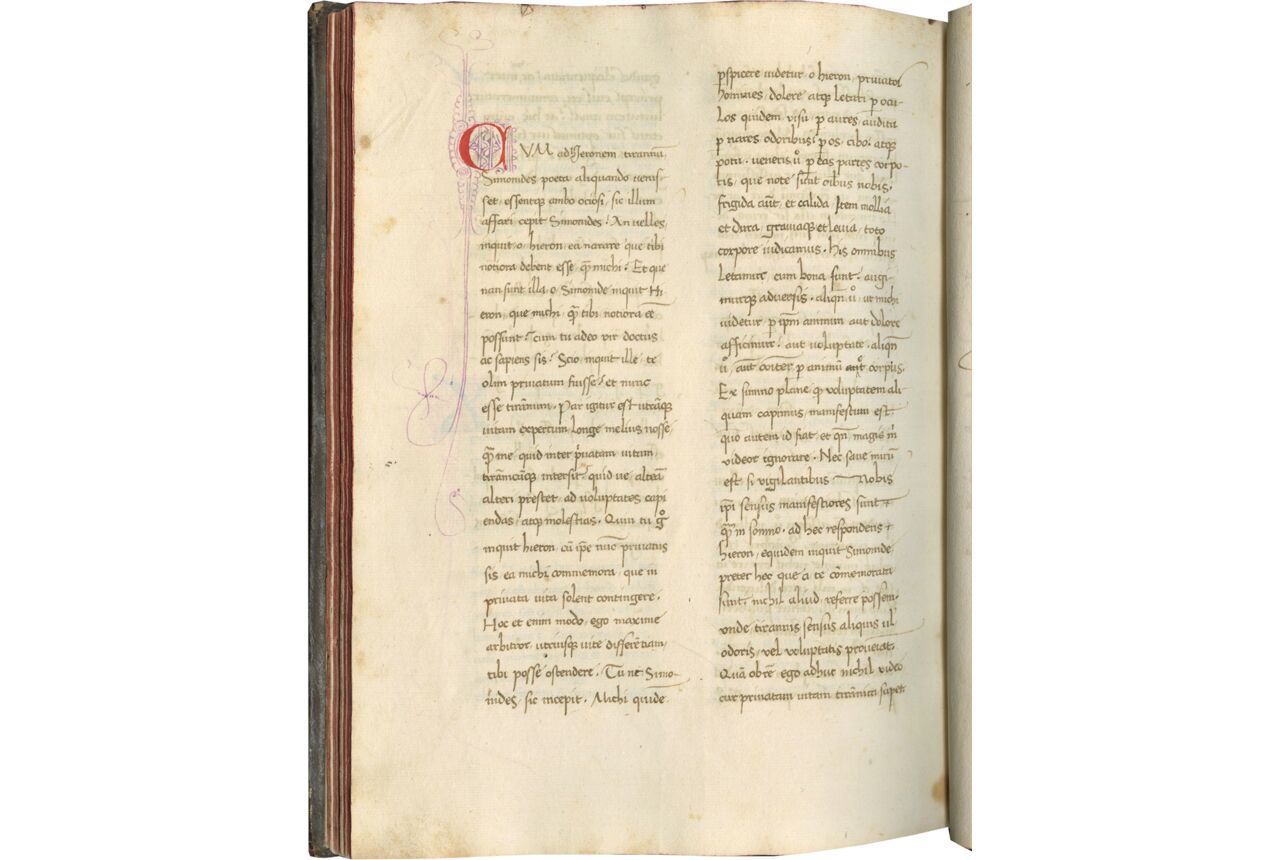 CVM ad hieronem tirannũ,
Simonides poeta aliquando uenis-
set, essentqƺ ambo ociosi, sic illum
affari cepit Simonides. An uelles,
inquit o hieron, ea narare que tibi
notiora debent esse, q̃ michi. Et que
nan sunt illa, o Simonide inquit Hi-
eron, que michi, q̃ tibi notiora eẽ
possunt. Cum tu adeo uir doctus
ac sapiens sis. Scio inquit ille, te
olim priuatum fuisse, et nunc
esse tirãnum. Par igitur est utrãqƺ
uitam expertum longe melius nosse,
q̃ me, quid inter p̃uatam uitam,
tirãnicãqƺ intersit, quid ue altẽa
alteri prestet, ad uoluptates capi
endas, atqƺ molestias. Quin tu gͦ
inquit hieron, cũ ip̃e nũc priuatus
sis, ea michi commemora, que in
priuata uita solent contingere.
Hoc et enim modo, ego maxime
arbitror, utriusqƺ uite differẽtiam,
tibi possẽ ostendere. Tũ ne Simo-
nides, sic incepit. Michi quidẽ
ꝑspicere uidetur, o hieron, priuatoſ
homines, dolere atqƺ letari ꝑ ocu-
los quidem uisu, ꝑ aures, auditu
ꝑ nares odoribusͥ ꝑ os, cibo, atqƺ
potu, ueneris ůͦ ꝑ eas partes corpo-
ris, que note sũnt oĩbus nobis,
frigida aũt, et calida, Item mollia
et dura, grauiaqƺ et leuia, toto
corpore iudicamus. His omnibus
letamur, cum bona sunt, angi-
murqƺ aduersis. aliqñ ůͦ, ut michi
uidetur, ꝑ ip̃m animum aut dolore
afficimur, aut uoluptate, aliqñ
ůͦ, aut cõiter, ꝑ animũ aut corpus.
Ex somno plane, ꝙ uoluptatem ali
quam capimus, manifestum est.
quo autem id fiat, et qñ, magis m̃
uideor ignorare. Nec sane mirũ
est si uigilantibus nobis
ip̃i sensus manifestiores sunt
q̃ in somno. ad hec respondens
hieron, equidem inquit Simonide
preter hec que a te cõmemorata
sunt, nichil aliud, referre possem
unde, tirannis sensus aliquis ul'
odoris, uel uoluptatis proueniat.
Quã obrẽ ego adhuc nichil uideo
cur priuatam uitam tirãnica supet